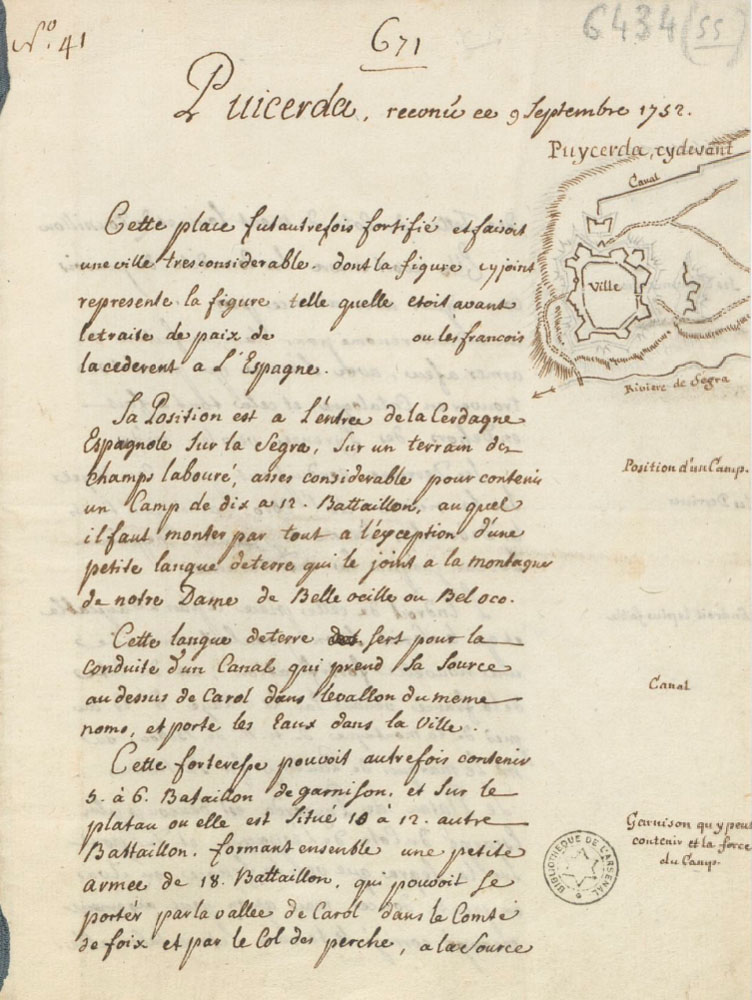 N.º 41
671
6434 (55)
Puicerda, reconü ce 9 Septembre 1752.
Puycerda, cydevant
Canal
Ville
Riviere de Segra
Cette place fut autrefois fortifié et faisoit
une ville tresconsiderable. dont la figure cyjoint
represente la figure telle quelle etoit avant
letraite de paix de ou les francois
lacederent a L'Espagne.
Sa Position est a L'entre de la Cerdagne
Espagnole sur la Segra, sur un terrain de
champs labouré, asses considerable pour contenir
un Camp de dix a 12. Battaillon, au quel
il faut monter par tout a l'exception d'une
petite langue deterre qui le joint a la montagne
de notre Dame de Belle oeille ou Beloco.
Position d'un Camp.
Cette langue deterre sert pour la
conduite d'un Canal qui prend sa source
au dessus de Carol dans levallon du meme
nom, et porte les Eaux dans la Ville.
Canal
Cette forteresse pouvoit autrefois contenir
5. à 6. Bataillon de garnison, et sur le
platau ou elle est situé 10 à 12. autre
Battaillon. formant ensemble une petite
armee de 18. Battaillon, qui pouvoit se
portér par la vallee de Carol dans le Comté
de foix et par le Col des perche, a la Source
Garnison qu'y peut
contenir et la force
du Camp.
BIBLIOTHEQUE DE L'ARSENAL